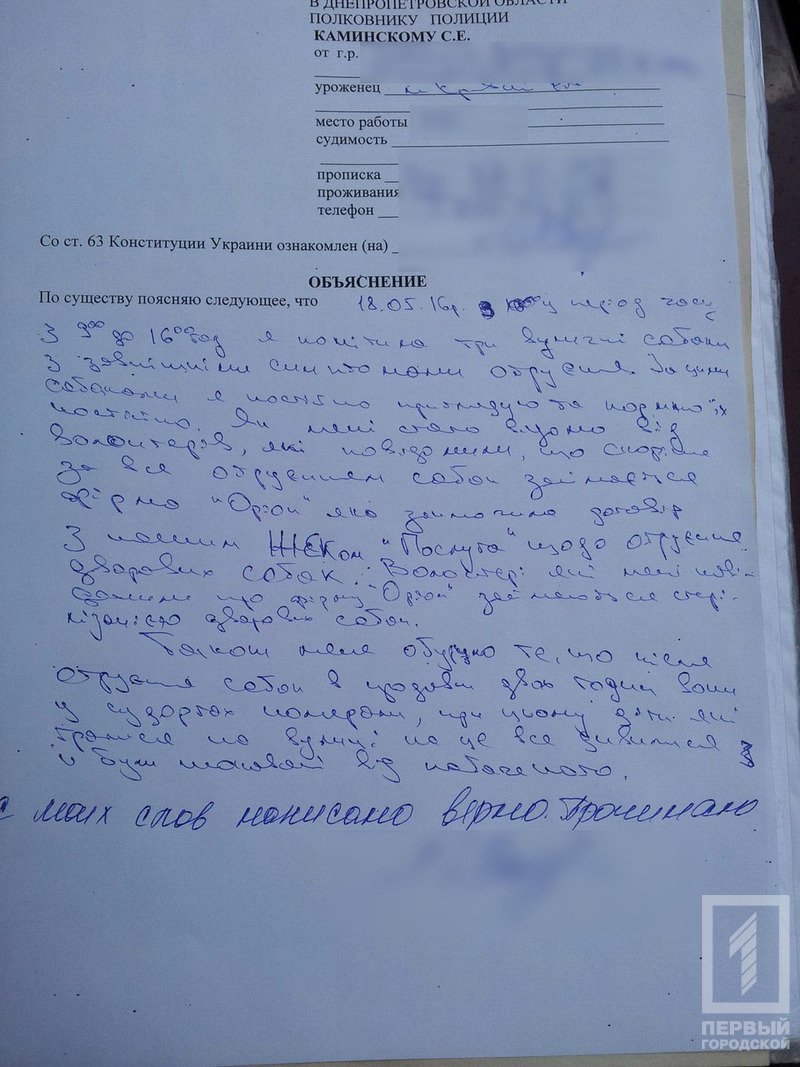 В ДНЕПРОПЕТРОВСКОЙ ОБЛАСТИ
ПОЛКОВНИКУ ПОЛИЦИИ
КАМИНСКОМУ С.Е.
от г.р.
уроженец
место работы
судимость
прописка
проживания
телефон
Со ст. 63 Конституции Украини ознакомлен (на)
ОБЪЯСНЕНИЕ
По существу поясняю следующее, что 18.05.16р. у період часу
З 9⁰⁰ до 16⁰⁰ год я помітила три вуличні собаки
З зовнішніми симптомами отруєння. За цими
собаками я постійно приглядую та кормлю їх
постійно. Як мені стало відомо від
волонтерів, які повідомили, що скоріше
за все отруєнням собак займається
фірма "Оріон" яка заключила договір
З нашим ЖЕКом "Послуга" щодо отруєння
дворових собак. Волонтері які мені пові-
домили що фірма "Оріон" займаються стері-
лізацією дворових собак.
Також мене обурило те, що після
отруєння собак в продовж двох годин вони
у судоргах помирали, при цьому діти які
гралися на вулиці на це все дивилися
й були шоковані від побаченого.
с моих слов написано верно. Прочитано
1
ПЕРВЫЙ
ГОРОДСКОЙ